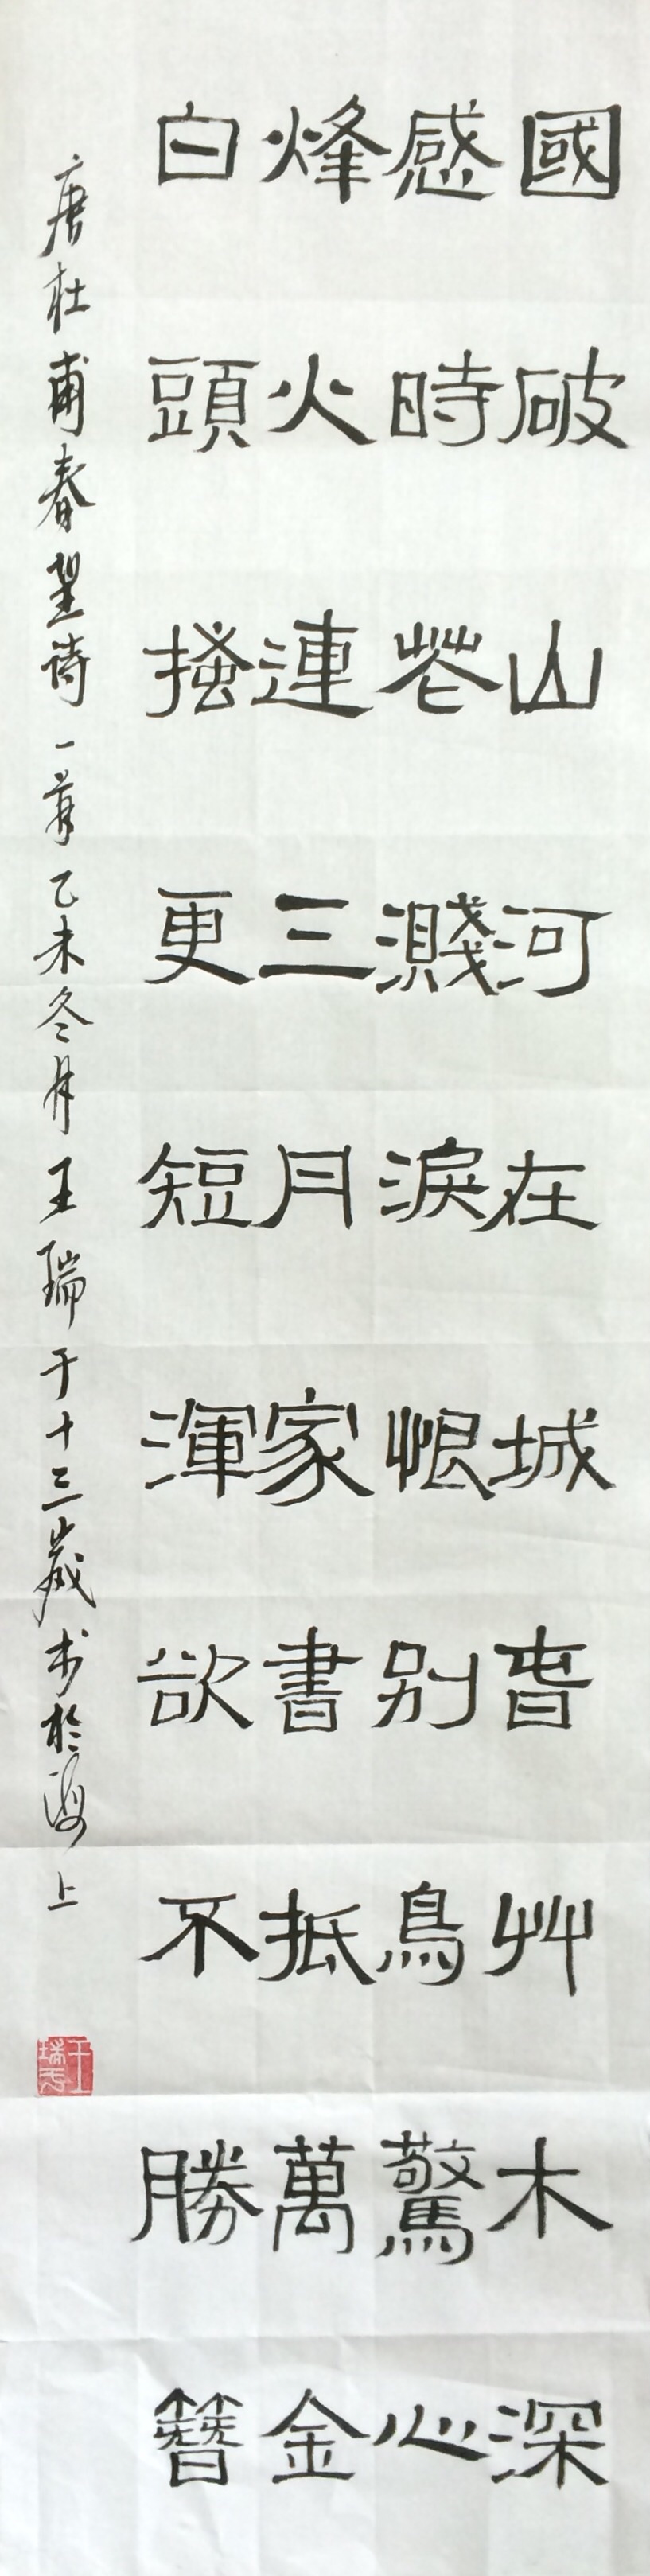 國破山河在城萅艸木深
感時蘤濺淚恨别鳥驚心
烽火連三月家書抵萬金
白頭搔更短渾欲不勝簪
唐杜甫春望诗一首乙未冬月王瑞于十三歲书於海上